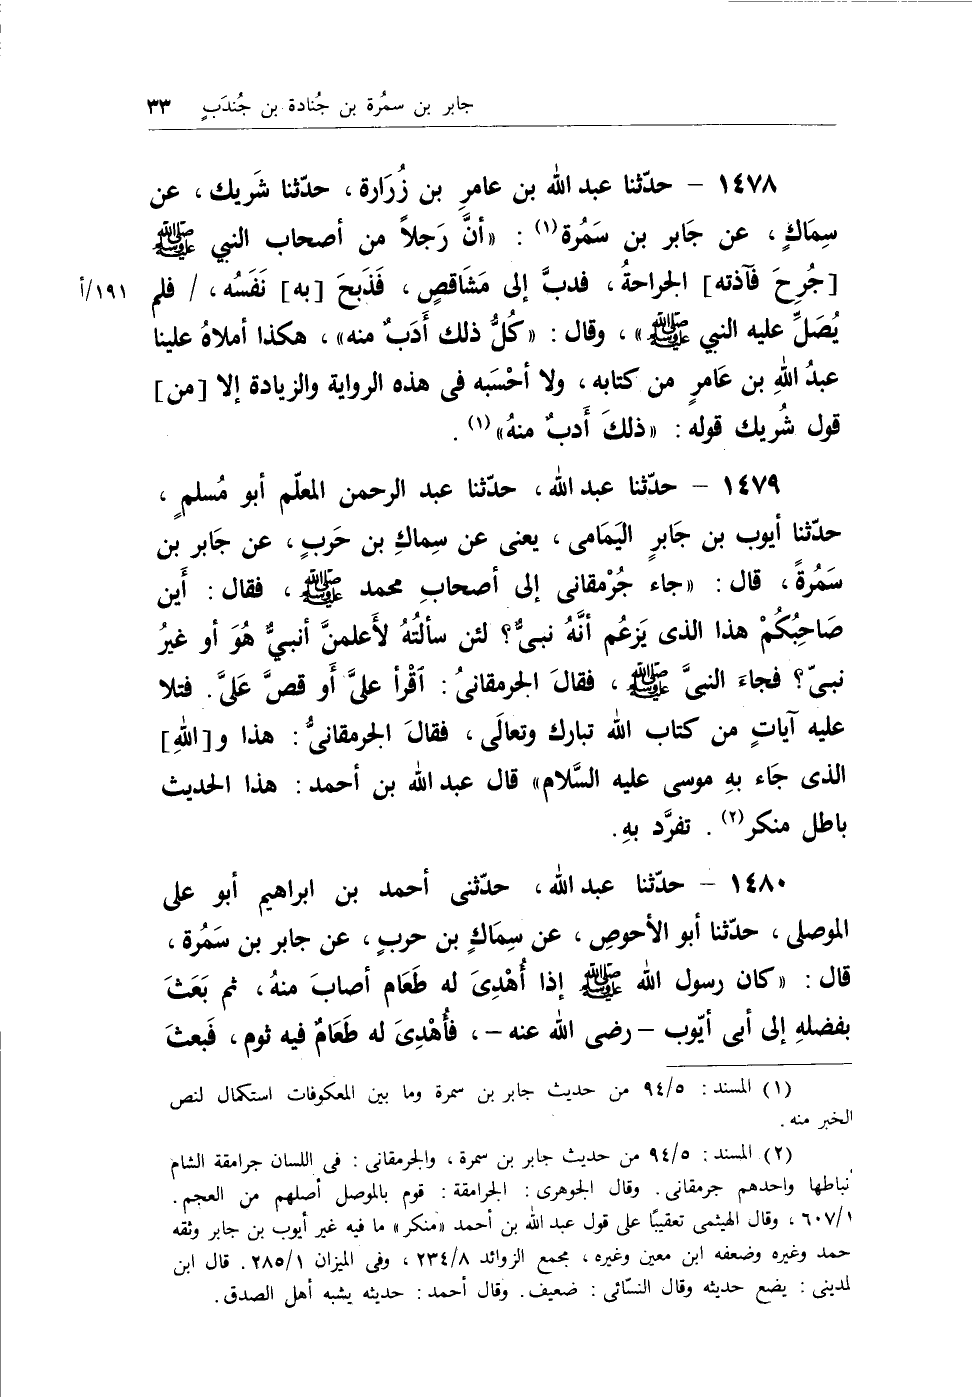 جابر بن سمُرة بن جُنادة بن جُندَبٍ ٣٣
١٤٧٨ - حدّثنا عبد الله بن عامرِ بن زُرَارة، حدّثنا شَريك، عن
سِمَاكٍ، عن جَابر بن سَمُرة(١) : «أنَّ رَجلاً من أصحاب النبي ﷺ
[جُرِحَ فَآذته] الجراحةُ، فدبَّ إلى مَشَاقصٍ، فَذَبحَ [به] نَفَسُه، / فلم ١٩١/أ
يُصَلِّ عليه النبي ﷺ»، وقال: «كُلُّ ذلك أَدَبٌ منه»، هكذا أملاهُ علينا
عبدُ اللهِ بن عَامرٍ من كتابه، ولا أحْسَبه فى هذه الرواية والزيادة إلا [من]
قول شُريك قوله: «ذلكَ أَدبٌ منهُ»(١).
١٤٧٩ - حدّثنا عبد الله، حدّثنا عبد الرحمن المعلّم أبو مُسلمٍ،
حدّثنا أيوب بن جَابرٍ اليَمامى، يعنى عن سِماكِ بن حَربٍ، عن جَابر بن
سَمُرةً، قال: «جاء جُرْمقانى إلى أصحابِ محمد ﷺ، فقال: أَين
صَاحِبُكُمْ هذا الذى يَزعُم أنَّهُ نبىٌّ؟ لئن سألتُهُ لأَعلمنَّ أنبيٌّ هُوَ أو غيرُ
نبىّ؟ فجاءَ النبىَّ ﷺ، فقالَ الجرمقانىُ: ٱقْرأ علىَّ أَو قصَّ عَلىَّ. فتلا
عليه آياتٍ من كتاب الله تبارك وتعالَى، فقالَ الجرمقانىُّ: هذا و[اللهِ]
الذى جَاء بهِ موسى عليه السَّلام» قال عبد الله بن أحمد: هذا الحديث
باطل منكر(٢). تفرَّد بهِ.
١٤٨٠ - حدّثنا عبد الله، حدّثنى أحمد بن ابراهيم أبو على
الموصلى، حدّثنا أبو الأحوصِ، عن سِمَاكٍ بن حربٍ، عن جابر بن سَمُرة،
قال: «كان رسول الله ﷺ إذا أُهْدِىَ له طَعَام أصابَ منهُ، ثم بَعَثَ
بفضلهِ إلى أبى أيّوب -رضى الله عنه-، فأُهْدِىَ له طَعَامٌ فيه ثوم، فَبعثَ
(١) المسند: ٩٤/٥ من حديث جابر بن سمرة وما بين المعكوفات استكمال لنص
الخبر منه.
(٢) المسند: ٩٤/٥ من حديث جابر بن سمرة، والجرمقانى: فى اللسان جرامقة الشام
نباطها واحدهم جرمقانى. وقال الجوهرى: الجرامقة: قوم بالموصل أصلهم من العجم.
٦٠٧/١، وقال الهيثمى تعقيبًا على قول عبد الله بن أحمد «منكر» ما فيه غير أيوب بن جابر وثقه
حمد وغيره وضعفه ابن معين وغيره، مجمع الزوائد ٢٣٤/٨، وفى الميزان ٢٨٥/١. قال ابن
لمدينى: يضع حديثه وقال النسّائى: ضعيف. وقال أحمد: حديثه يشبه أهل الصدق.